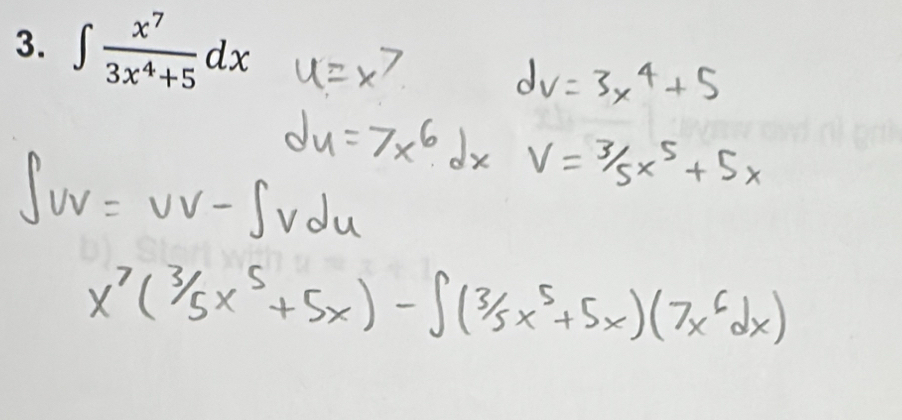 3. ∫ x⁷/(3x⁴+5) dx
u = x⁷ dv = 3x⁴ + 5
du = 7x⁶ dx v = 3/5x⁵ + 5x
∫uv = uv - ∫v du
x⁷(3/5x⁵ + 5x) - ∫(3/5x⁵ + 5x)(7x⁶dx)